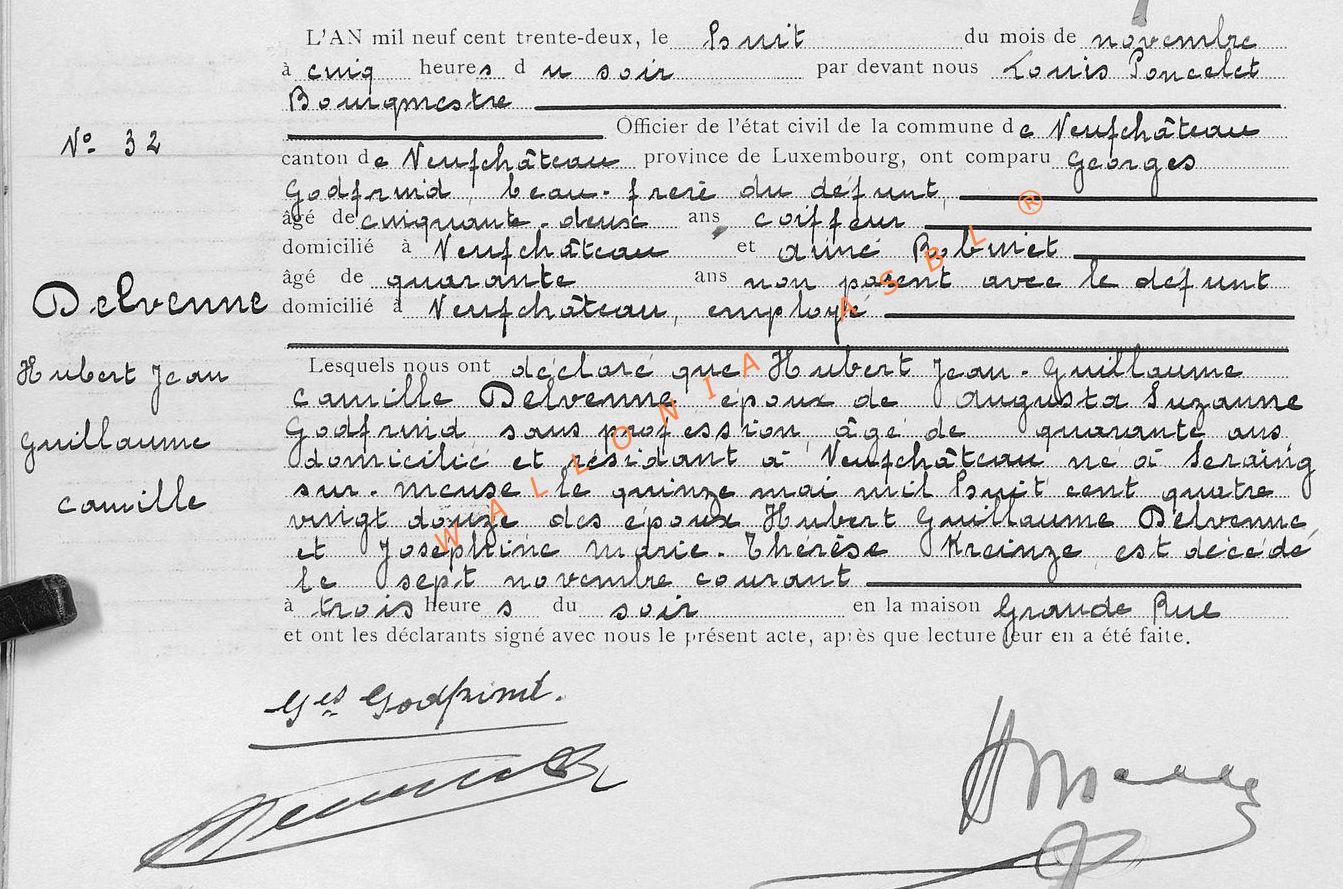 L'AN mil neuf cent trente-deux, le huit du mois de novembre
à cinq heures du soir par devant nous Louis Poncelet
Bourgmestre
Officier de l'état civil de la commune de Neufchâteau
N° 32
canton de Neufchâteau province de Luxembourg, ont comparu Georges
Godfrind, beau-frere du défunt,
âgé de cinquante-deux ans coiffeur
domicilié à Neufchâteau et aimé Robinet
âgé de quarante ans non parent avec le défunt
domicilié à Neufchâteau, employé
Delvenne
Hubert Jean
Guillaume
Camille
Lesquels nous ont déclaré que Hubert Jean-Guillaume
Camille Delvenne époux de Augusta Suzanne
Godfrind, sans profession, âgé de quarante ans
domicilié et résidant à Neufchâteau né à Seraing
sur-Meuse le quinze mai mil huit cent quatre
vingt douze des époux Hubert Guillaume Delvenne
et Joséphine Marie-Thérèse Kreinze est décédé
le sept novembre courant
à trois heures du soir en la maison Grande Rue
et ont les déclarants signé avec nous le présent acte, après que lecture leur en a été faite.
WALLONIA ASBL ®
Ges Godfrind.